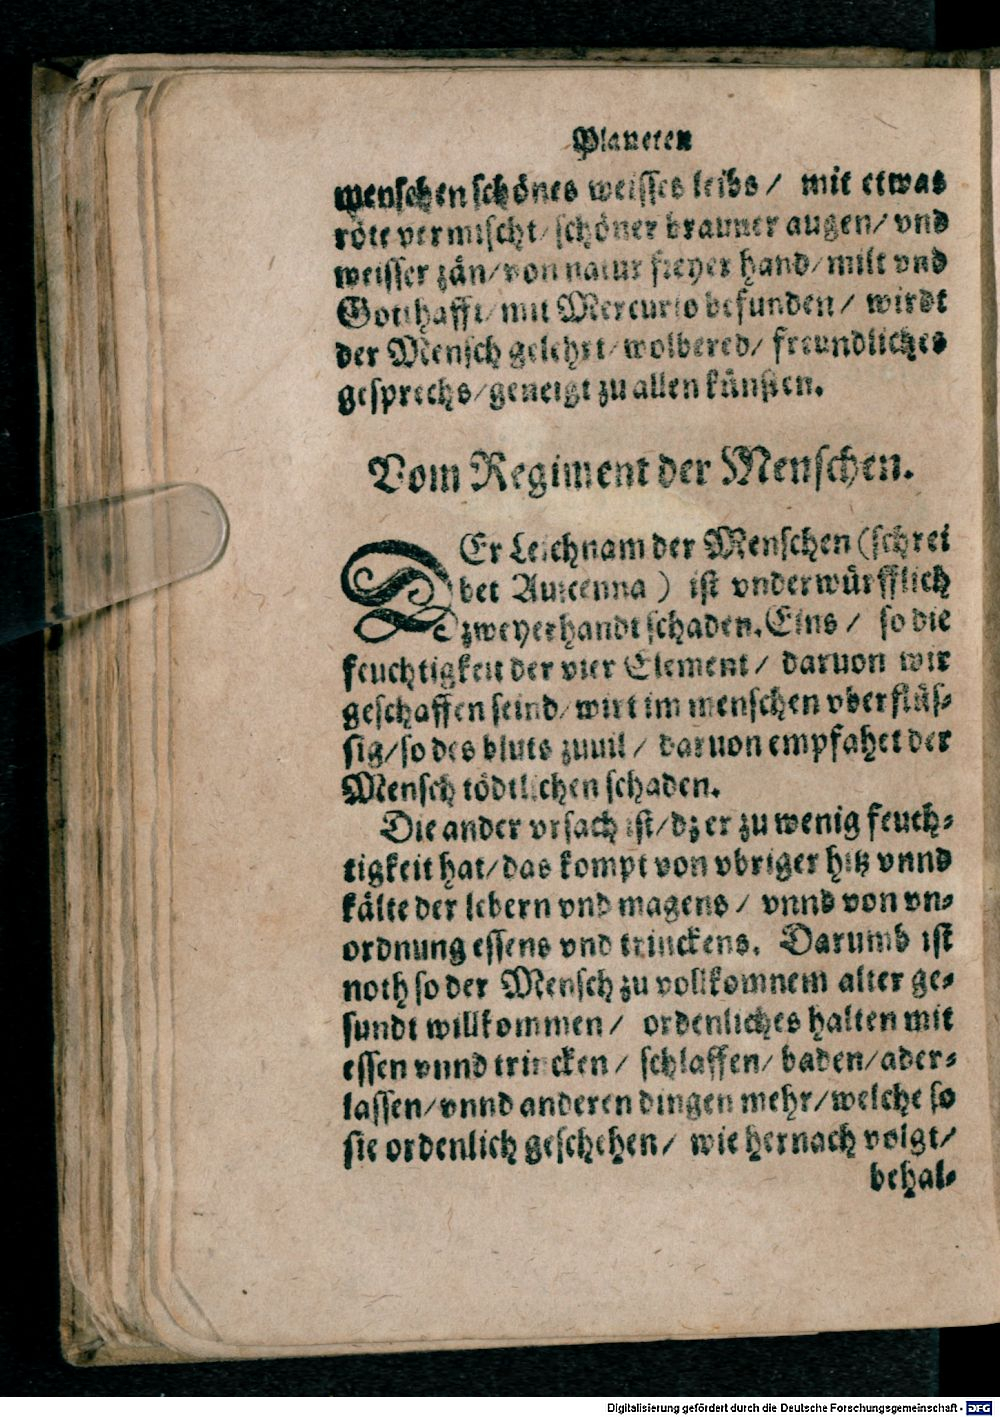 Planeten
menschen schönes weisses leibs / mit etwas
röte vermischt / schöner brauner augen / vnd
weisser zän / von natur freyer hand / milt vnd
Gotthafft / mit Mercurio befunden / wirdt
der Mensch gelehrt / wolbered / freundliches
gesprechs / geneigt zu allen künsten.
Vom Regiment der Menschen.
DEr Leichnam der Menschen (schrei
bet Auicenna) ist vnderwürfflich
zweyerhandt schaden. Eins / so die
feuchtigkeit der vier Element / daruon wir
geschaffen seind / wirt im menschen vberflüs-
sig / so des bluts zuuil / daruon empfahet der
Mensch tödtlichen schaden.
Die ander vrsach ist / dz er zu wenig feuch-
tigkeit hat / das kompt von vbriger hitz vnnd
kälte der lebern vnd magens / vnnd von vn-
ordnung essens vnd trinckens. Darumb ist
noth so der Mensch zu vollkomnem alter ge-
sundt will kommen / ordenliches halten mit
essen vnnd trincken / schlaffen / baden / ader-
lassen / vnnd anderen dingen mehr / welche so
sie ordenlich geschehen / wie hernach volgt /
behal-
Digitalisierung gefördert durch die Deutsche Forschungsgemeinschaft - DFG